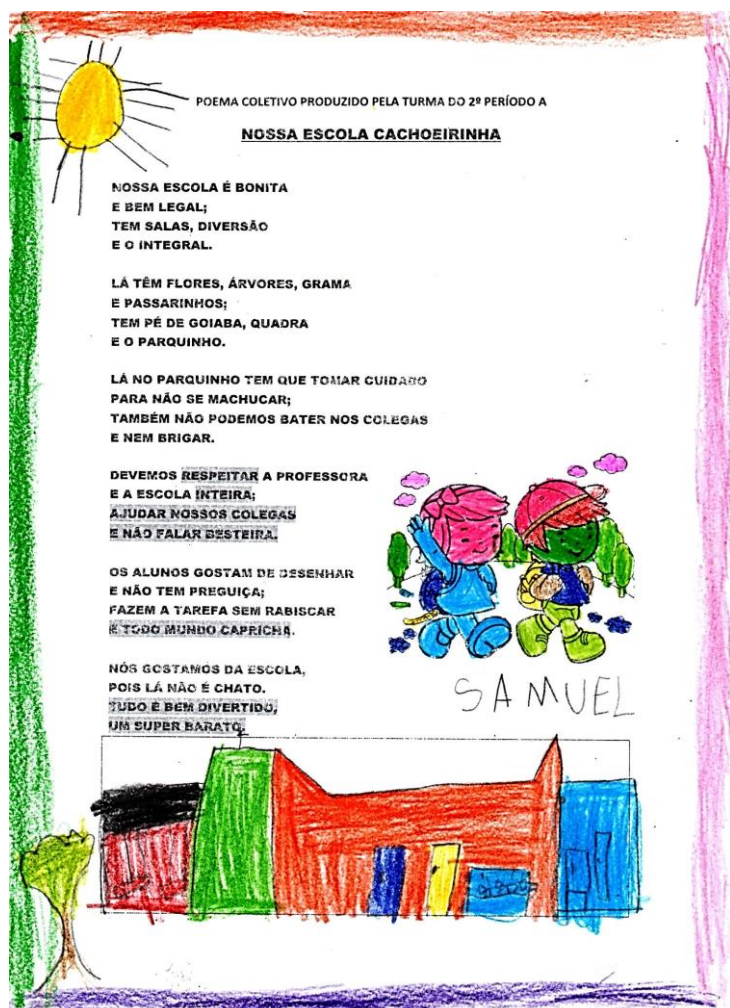 POEMA COLETIVO PRODUZIDO PELA TURMA DO 2º PERÍODO A
NOSSA ESCOLA CACHOEIRINHA
NOSSA ESCOLA É BONITA
E BEM LEGAL;
TEM SALAS, DIVERSÃO
E O INTEGRAL.
LÁ TÊM FLORES, ÁRVORES, GRAMA
E PASSARINHOS;
TEM PÉ DE GOIABA, QUADRA
E O PARQUINHO.
LÁ NO PARQUINHO TEM QUE TOMAR CUIDADO
PARA NÃO SE MACHUCAR;
TAMBÉM NÃO PODEMOS BATER NOS COLEGAS
E NEM BRIGAR.
DEVEMOS RESPEITAR A PROFESSORA
E A ESCOLA INTEIRA;
AJUDAR NOSSOS COLEGAS
E NÃO FALAR BESTEIRA.
OS ALUNOS GOSTAM DE DESENHAR
E NÃO TEM PREGUIÇA;
FAZEM A TAREFA SEM RABISCAR
E TODO MUNDO CAPRICHA.
NÓS GOSTAMOS DA ESCOLA,
POIS LÁ NÃO É CHATO.
TUDO É BEM DIVERTIDO,
UM SUPER BARATO.
SAMUEL